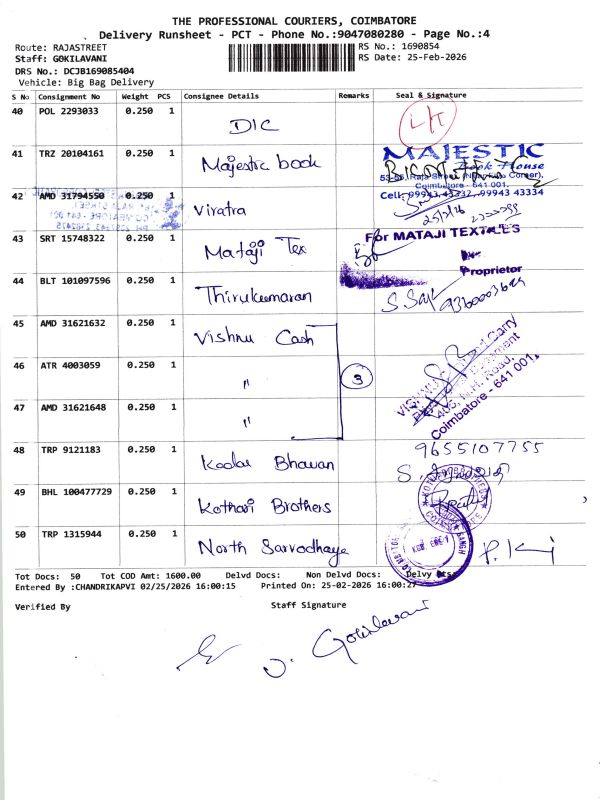 THE PROFESSIONAL COURIERS, COIMBATORE
Delivery Runsheet - PCT - Phone No.:9047080280 - Page No.:4
Route: RAJASTREET
RS No.: 1690854
Staff: GOKILAVANI
RS Date: 25-Feb-2026
DRS No.: DCJB169085404
Vehicle: Big Bag Delivery
S No Consignment No Weight PCS Consignee Details Remarks Seal & Signature
40 POL 2293033 0.250 1 DIC
41 TRZ 20104161 0.250 1 Majestic book
MAJESTIC
Book House
Coimbatore - 641 001.
Cell: 99943 43332, 99943 43334
42 AMD 31794550 0.250 1 Viratra
25/2/26
43 SRT 15748322 0.250 1 Mataji Tex
For MATAJI TEXTILES
Proprietor
44 BLT 101097596 0.250 1 Thirukumaran
45 AMD 31621632 0.250 1 Vishnu Cash
46 ATR 4003059 0.250 1 "
3
47 AMD 31621648 0.250 1 "
Coimbatore - 641 001.
48 TRP 9121183 0.250 1 Kodai Bhavan
9655107755
49 BHL 100477729 0.250 1 Kothari Brothers
50 TRP 1315944 0.250 1 North Sarvodhaya
Tot Docs: 50 Tot COD Amt: 1600.00 Delvd Docs: Non Delvd Docs: Delvy
Entered By :CHANDRIKAPVI 02/25/2026 16:00:15 Printed On: 25-02-2026 16:00:27
Verified By
Staff Signature
Gokilavani